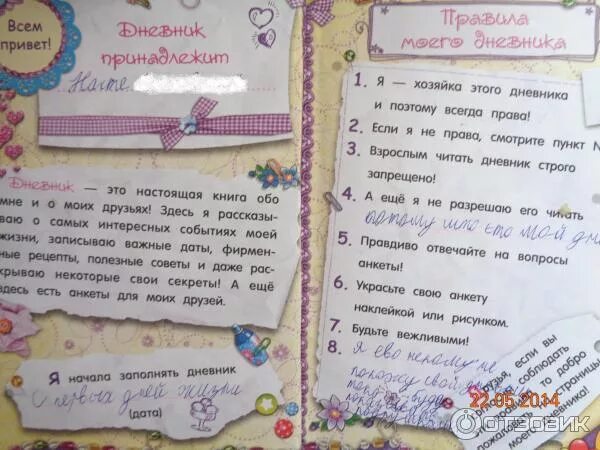 Всем
привет!
Дневник
принадлежит
Насте
Дневник — это настоящая книга обо
мне и о моих друзьях! Здесь я рассказы-
ваю о самых интересных событиях моей
жизни, записываю важные даты, фирмен-
ные рецепты, полезные советы и даже рас-
крываю некоторые свои секреты! А ещё
здесь есть анкеты для моих друзей.
Я начала заполнять дневник
С первых дней жизни
(дата)
Правила
моего дневника
1. Я — хозяйка этого дневника
и поэтому всегда права!
2. Если я не права, смотрите пункт
3. Взрослым читать дневник строго
запрещено!
4. А ещё я не разрешаю его читать
потому што ето мой
5. Правдиво отвечайте на вопросы
анкеты!
6. Украсьте свою анкету
наклейкой или рисунком.
7. Будьте вежливыми!
8. Я ево некому не
покожу свой
друзья, если вы
соблюдать
то добро
страницы
моего дневника!
22.05.2014
ОТЗОВИК